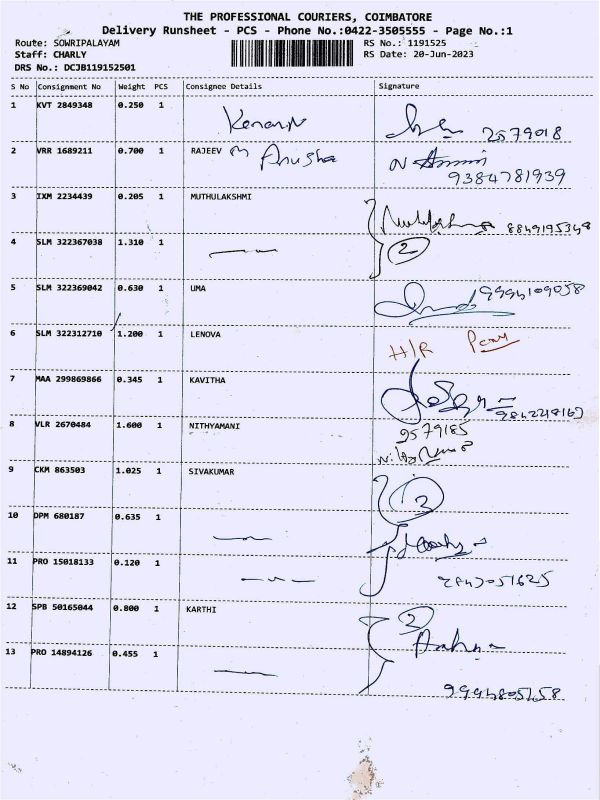 THE PROFESSIONAL COURIERS, COIMBATORE
Delivery Runsheet - PCS - Phone No.:0422-3505555 - Page No.:1
Route: SOWRIPALAYAM RS No.: 1191525
Staff: CHARLY RS Date: 20-Jun-2023
DRS No.: DCJB119152501
S No Consignment No Weight PCS Consignee Details Signature
1 KVT 2849348 0.250 1
2579018
2 VRR 1689211 0.700 1 RAJEEV m Anusha
9384781939
3 IXM 2234439 0.205 1 MUTHULAKSHMI
8849195348
4 SLM 322367038 1.310 1 2
5 SLM 322369042 0.630 1 UMA 9994109058
6 SLM 322312710 1.200 1 LENOVA H/R
7 MAA 299869866 0.345 1 KAVITHA
8 VLR 2670484 1.600 1 NITHYAMANI 2579185
9 CKM 863503 1.025 1 SIVAKUMAR
10 DPM 680187 0.635 1
11 PRO 15018133 0.120 1
12 SPB 50165044 0.800 1 KARTHI 2
13 PRO 14894126 0.455 1